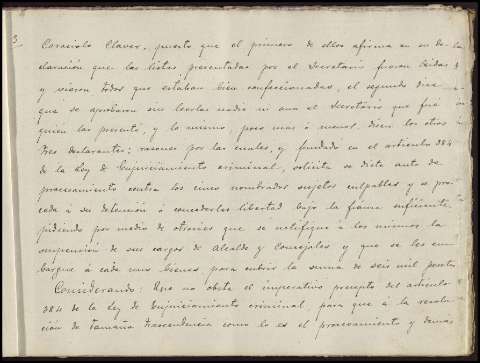 3
Coracielo Claver, puesto que el primero de ellos afirma en su de-
claración que las listas presentadas por el Secretario fueron leidas
y vieron todos que estaban bien confeccionadas, el segundo dice
que se aprobaron sin leerlas nadie ni aun el Secretario que fué
quién las presentó, y lo mismo, poco mas ó menos, dicen los otros
tres declarantes; razones por las cuales, y fundado en el articulo 384
de la Ley de Enjuiciamiento criminal, solicita se dicte auto de
procesamiento contra los cinco nombrados sujetos culpables y se pro-
ceda á su detención ó concederles libertad bajo la fianza suficiente
pidiendo por medio de otrosies que se notifique á los mismos la
suspensión de sus cargos de Alcalde y Concejales y que se les em-
bargue á cada uno bienes para cubrir la suma de seis mil pesetas
Considerando: Que no obsta el imperativo precepto del articulo
384 de la Ley de Enjuiciamiento criminal, para que á la resolu-
ción de tamaña trascendencia como lo es el procesamiento y demas